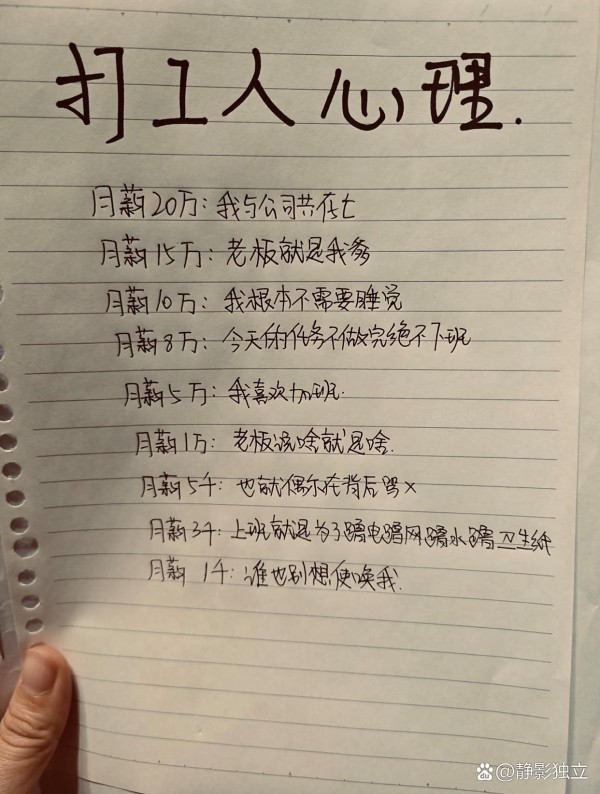 打工人心理.
月薪20万：我与公司共存亡
月薪15万：老板就是我爹
月薪10万：我根本不需要睡觉
月薪8万：今天的任务不做完绝不下班
月薪5万：我喜欢加班.
月薪1万：老板说啥就是啥.
月薪5千：也就偶尔在背后骂x
月薪3千：上班就是为了蹭电蹭网蹭水蹭卫生纸
月薪1千：谁也别想使唤我.
@静影独立